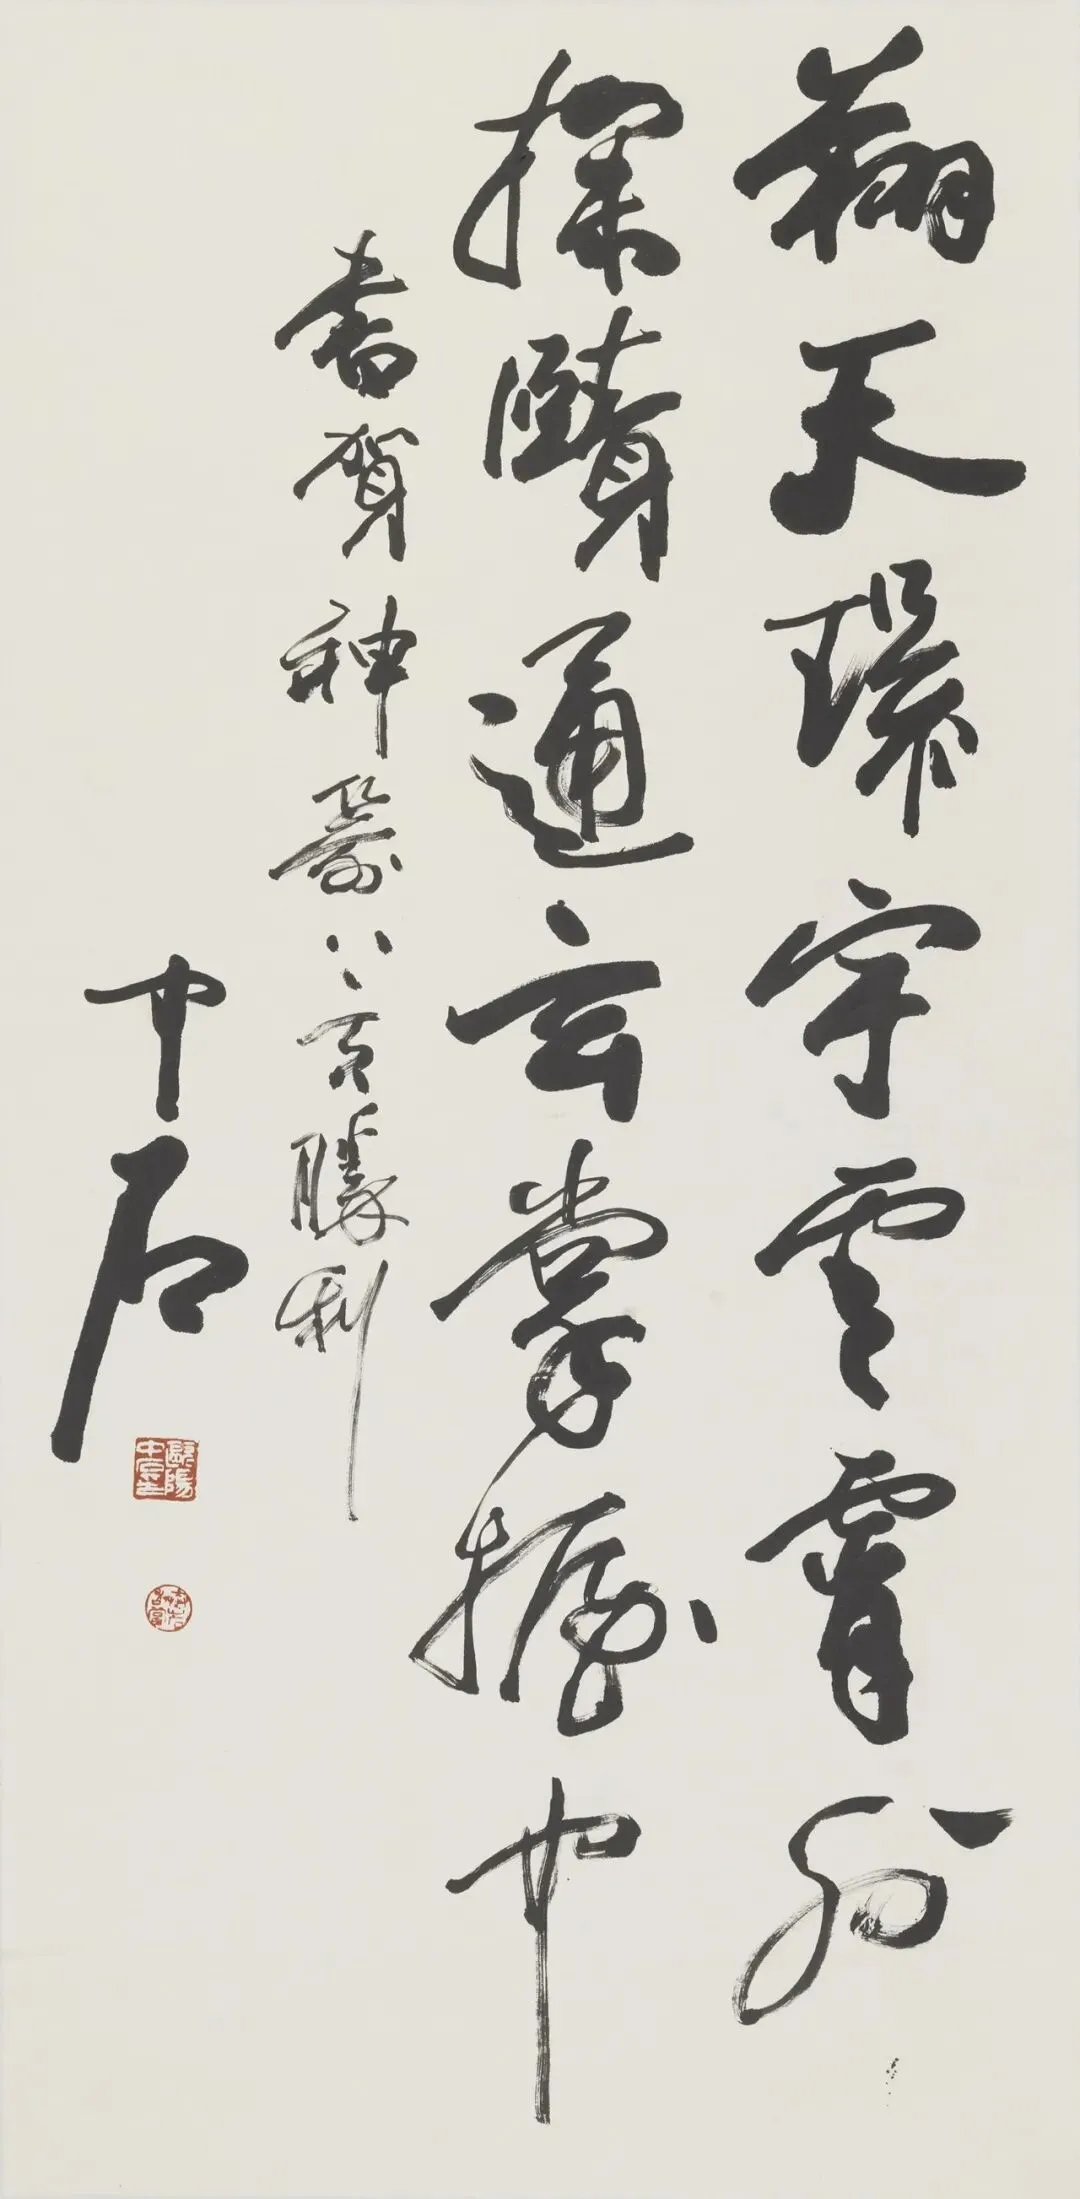 翔天環宇雲霄外
探賾通玄掌握中
書賀神箭八勝利
中石
歐陽中石